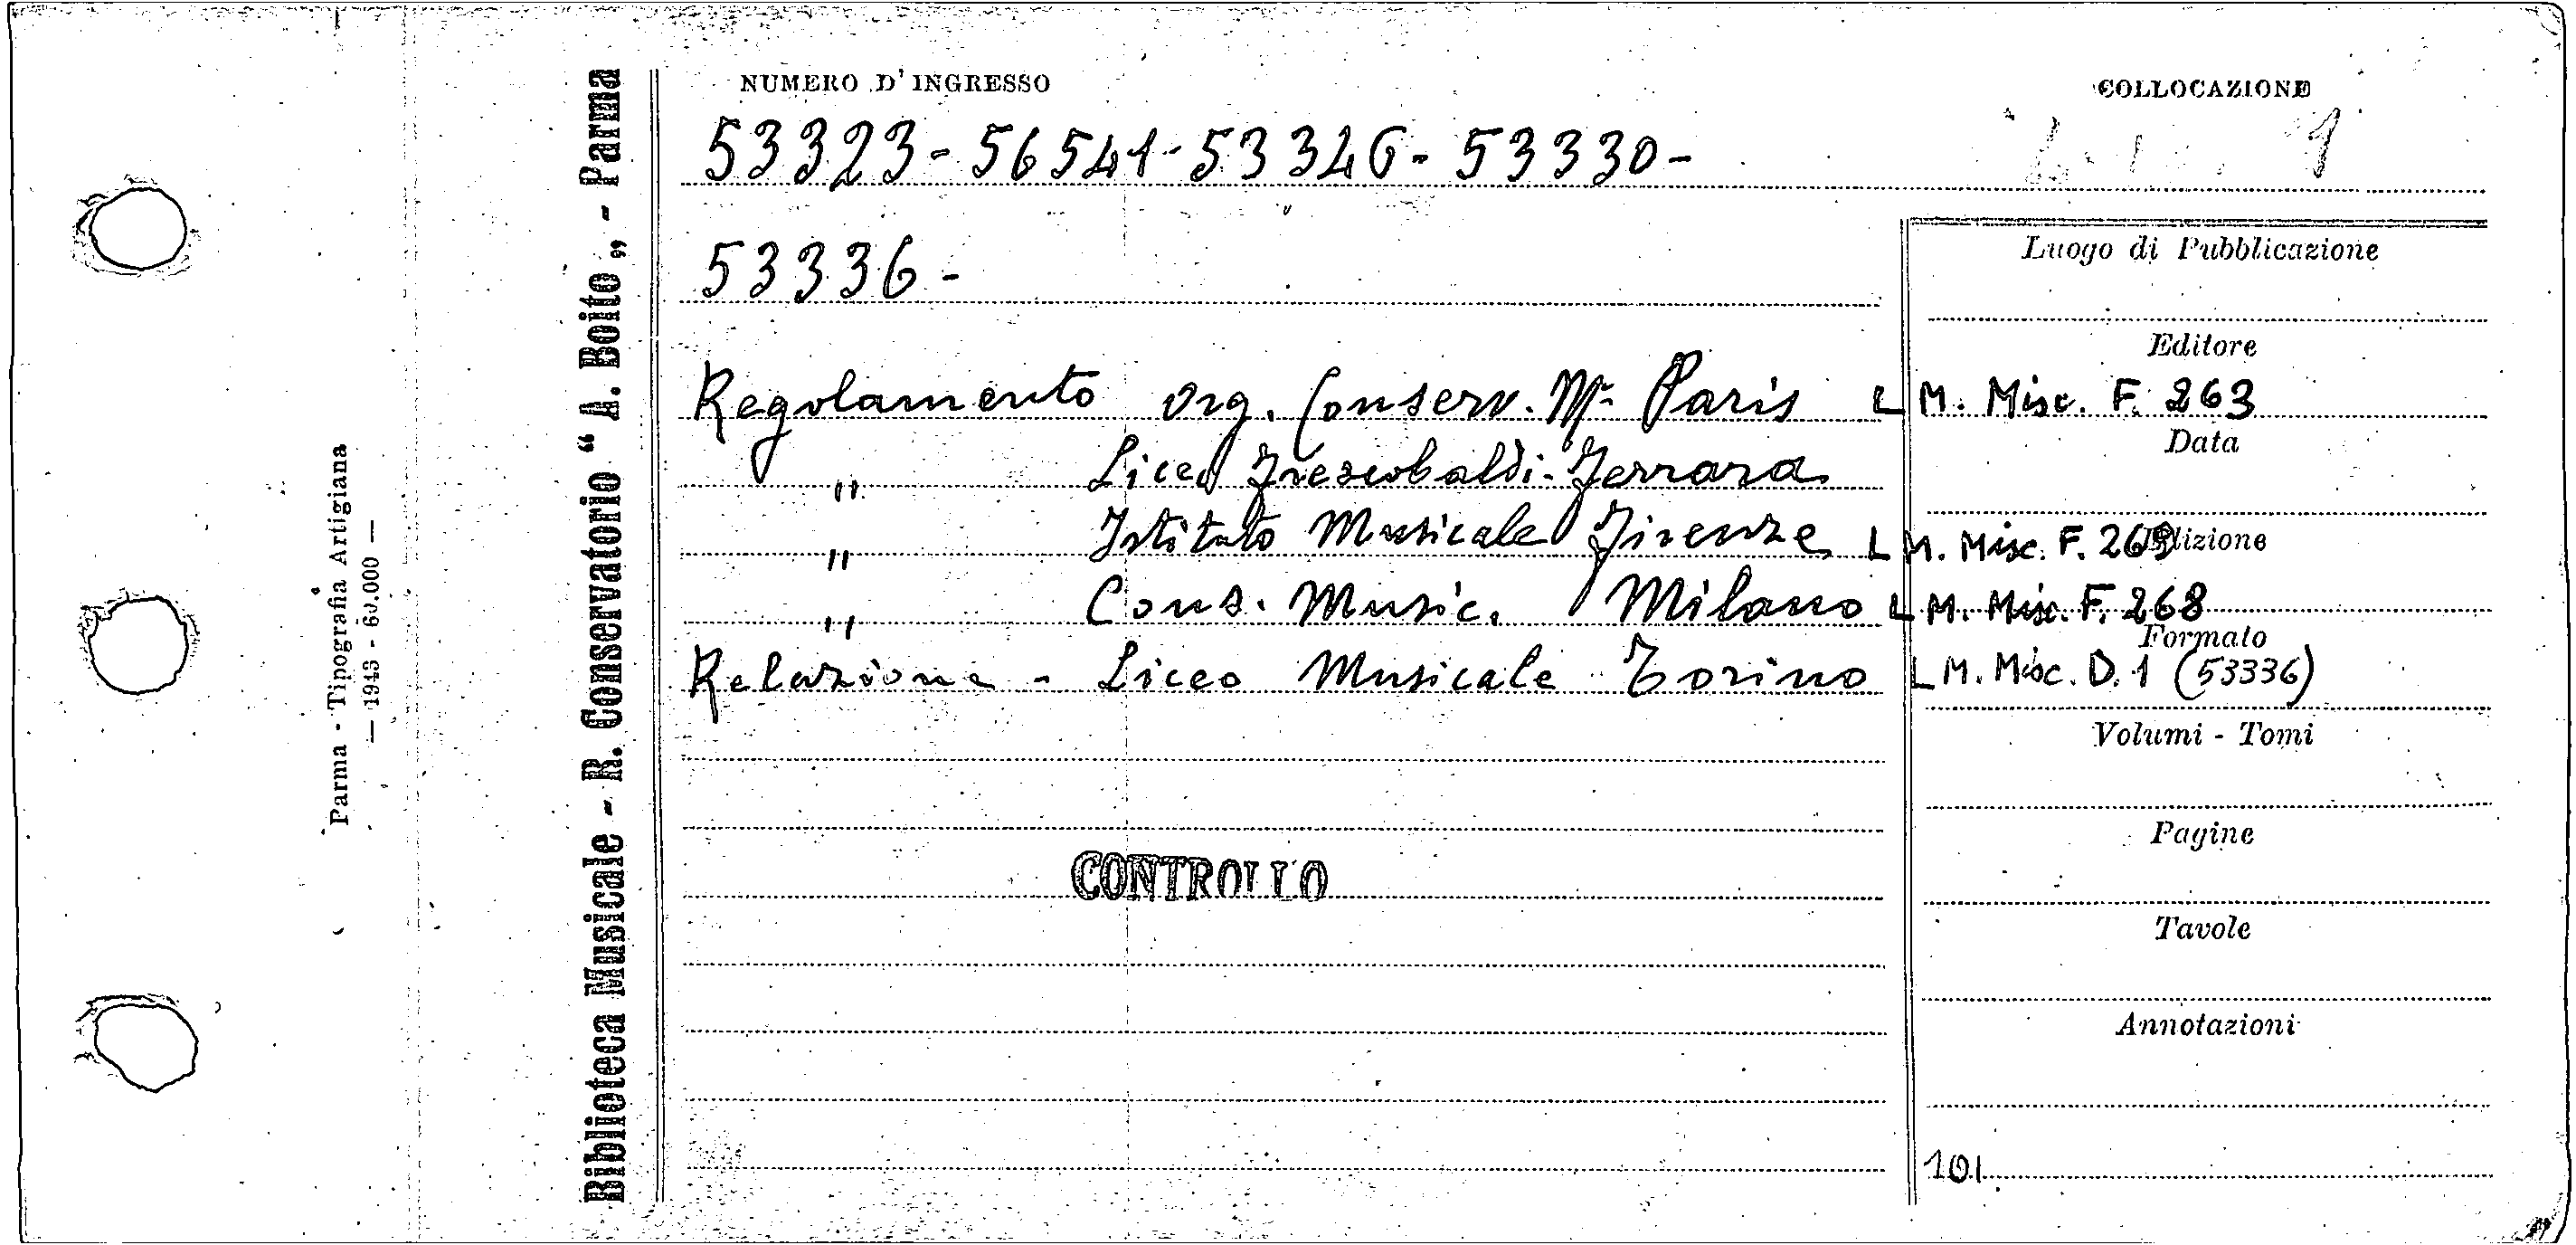 NUMERO D'INGRESSO
COLLOCAZIONE
53323 - 56541 - 53326 - 53330 -
53336 -
Regolamento Org. Conserv. Mle Paris L M. Misc. F. 263
" Liceo Frescobaldi - Ferrara
" Istituto Musicale Firenze L M. Misc. F. 269
" Cons. Music. Milano L M. Misc. F. 268
Relazione - Liceo Musicale Torino L M. Misc. D. 1 (53336)
CONTROLLO
Luogo di Pubblicazione
Editore
Data
Edizione
Formato
Volumi - Tomi
Pagine
Tavole
Annotazioni
101
Biblioteca Musicale - R. Conservatorio “ A. Boito „ - Parma
Parma - Tipografia Artigiana
— 1943 - 60.000 —